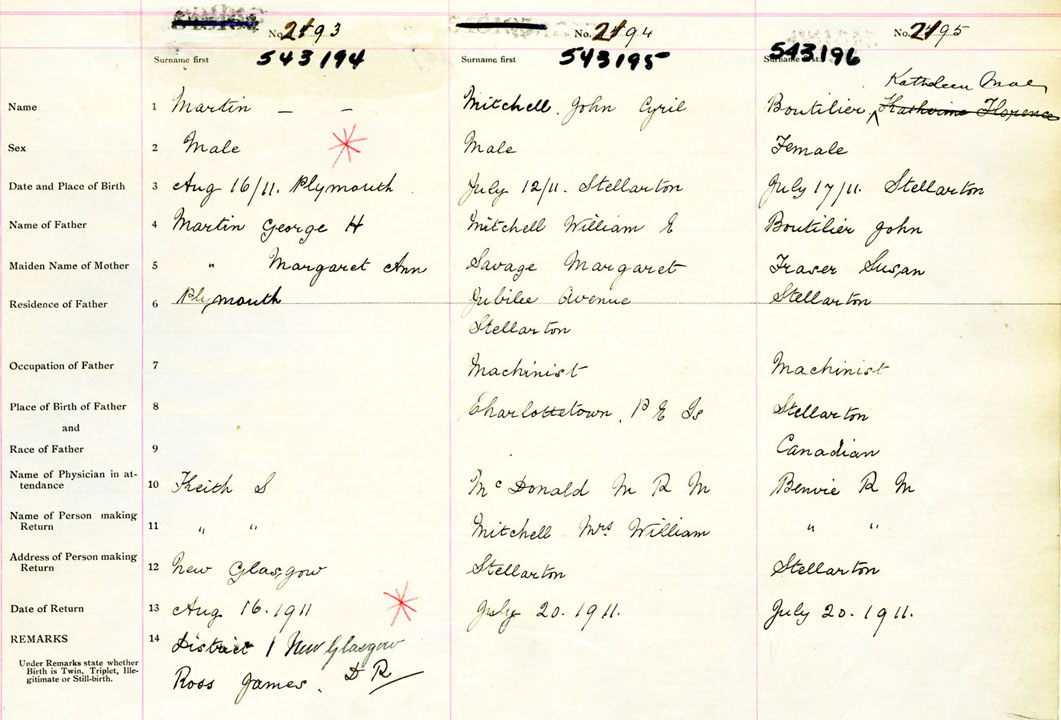 No. 2493 No. 2494 No. 2495
Surname first 543194 Surname first 543195 Surname first 543196
Kathdeen Mae
Name 1 Martin — — Mitchell. John Cyril Boutilier, ^ Katherine Florence
Sex 2 Male Male Female
Date and Place of Birth 3 Aug 16/11. Plymouth. July 12/11. Stellarton July 17/11. Stellarton
Name of Father 4 Martin George H Mitchell William E Boutilier John
Maiden Name of Mother 5 " Margaret Ann Savage Margaret Fraser Susan
Residence of Father 6 Plymouth Jubilee Avenue Stellarton
Stellarton
Occupation of Father 7 Machinist Machinist
Place of Birth of Father 8 Charlottetown, P E Is Stellarton
and
Race of Father 9 Canadian
Name of Physician in at-
tendance 10 Keith S Mc Donald M R M Benvie R M
Name of Person making
Return 11 " " Mitchell Mrs William " "
Address of Person making
Return 12 New Glasgow Stellarton Stellarton
Date of Return 13 Aug 16. 1911 July 20. 1911. July 20. 1911.
REMARKS 14 District 1 New Glasgow
Under Remarks state whether
Birth is Twin, Triplet, Ille-
gitimate or Still-birth.
Ross James. D R